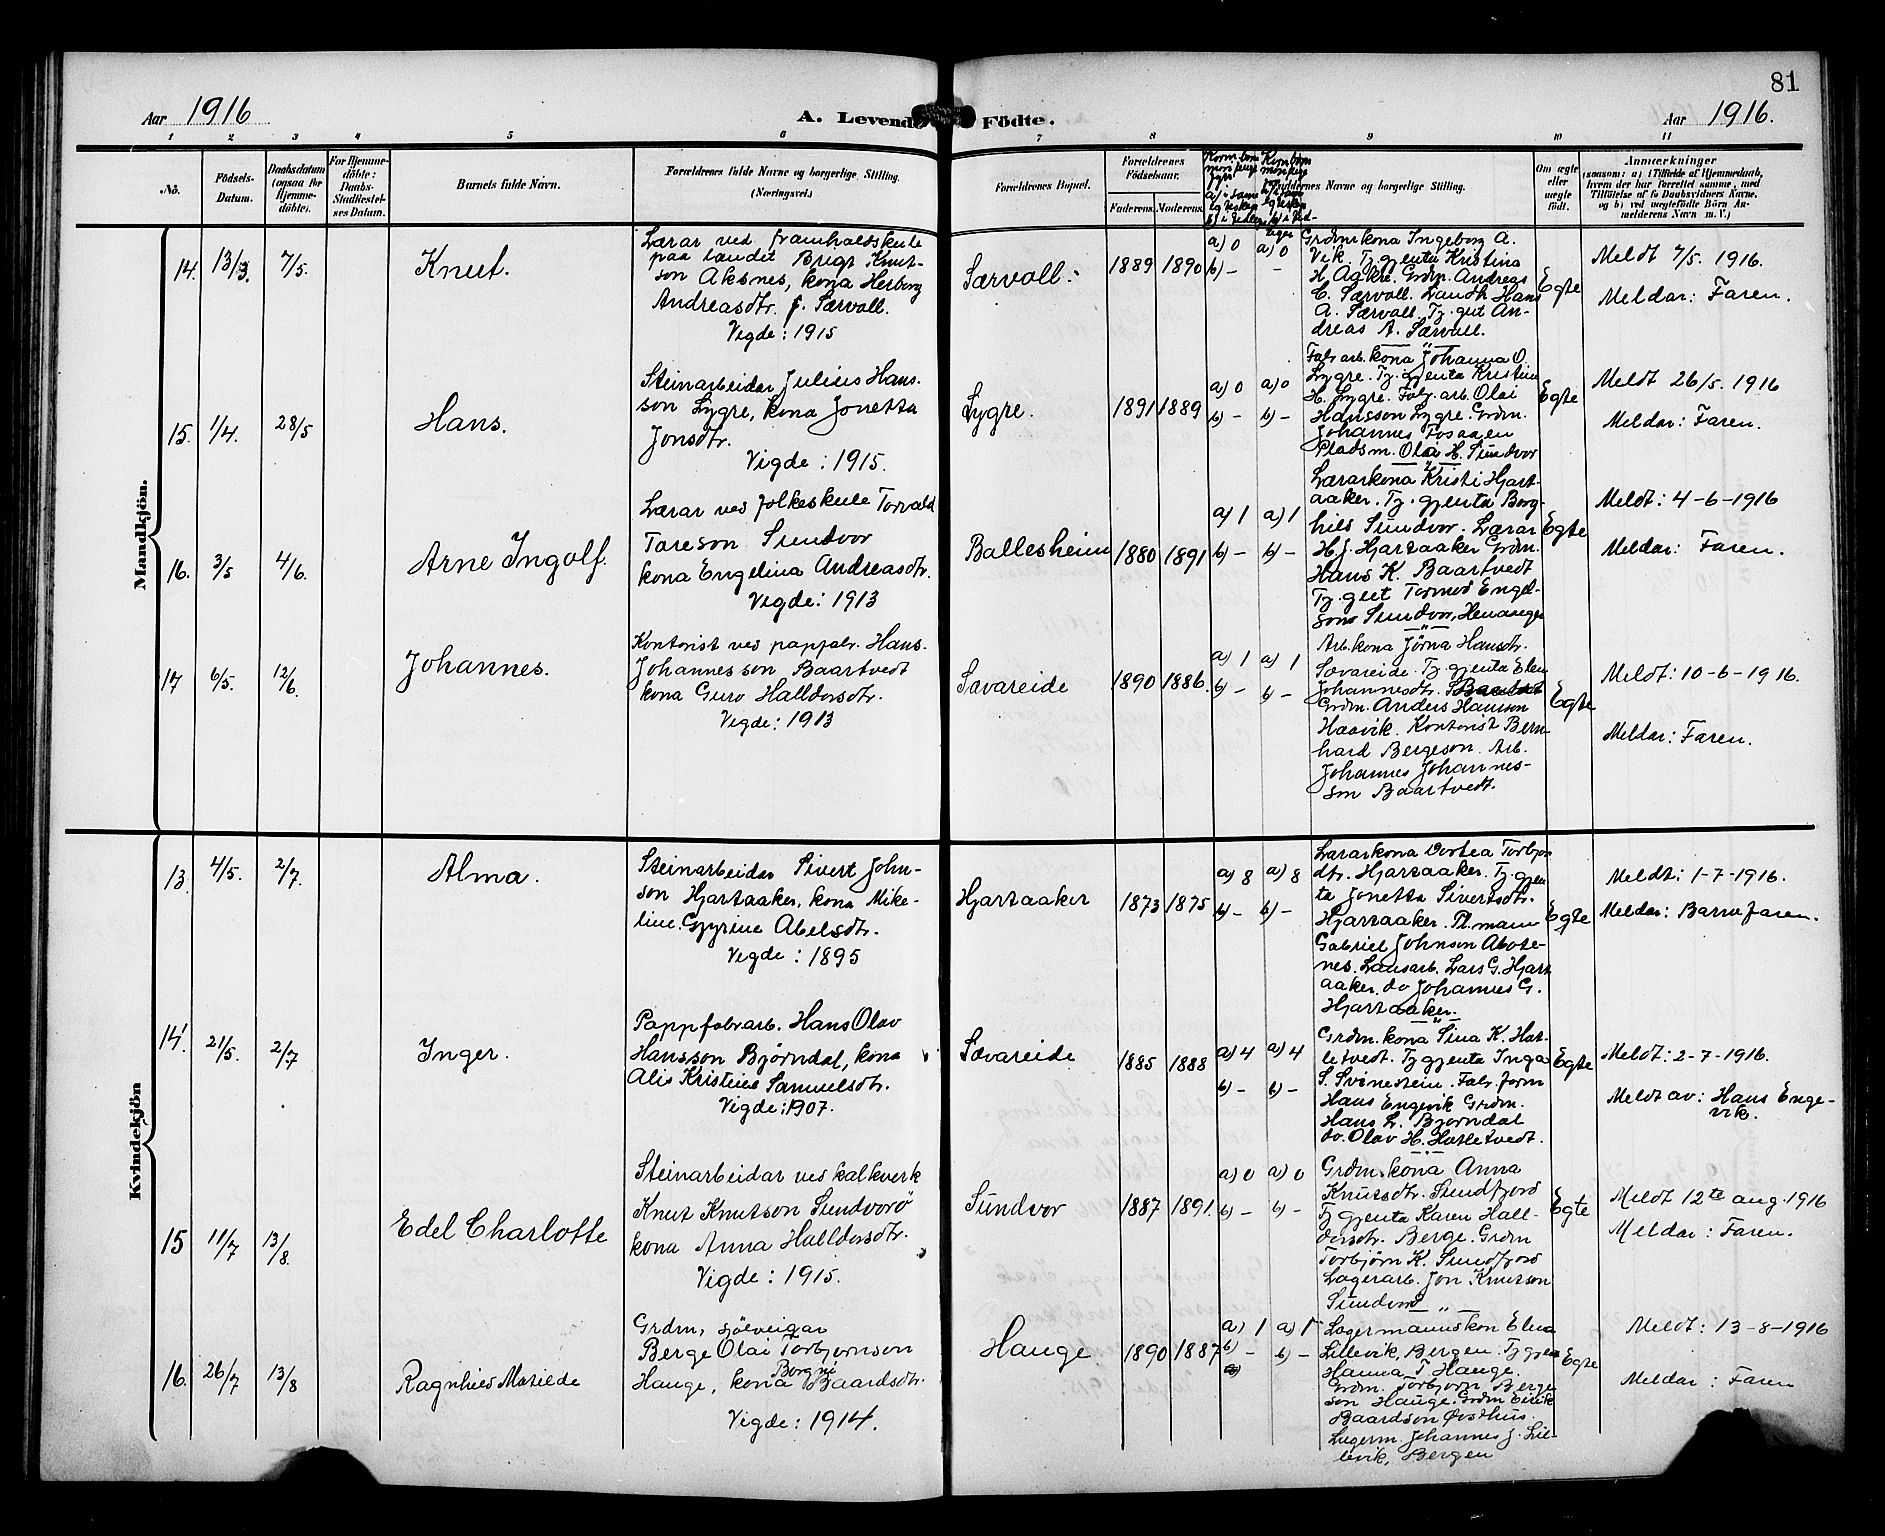 81
Aar 1916
A. Levende Födte.
Aar 1916.
1 2 3 4 5 6 7 8 9 10 11
No.
Födsels-
Datum.
Daabsdatum
(ogsaa for
Hjemme-
döbte).
For Hjemme-
döbte:
Daabs-
Stadfæstel-
ses Datum.
Barnets fulde Navn.
Forældrenes fulde Navne og borgerlige Stilling.
(Næringsvei.)
Forældrenes Bopæl.
Forældrenes
Födselsaar.
Faderens. Moderens.
Faddernes Navne og borgerlige Stilling.
Om ægte
eller
uægte
födt.
Anmærkninger
(saasom: a) i Tilfælde af Hjemmedaab,
hvem der har forrettet samme, med
Tilföielse af to Daabsvidners Navne,
og b) ved uægtefödte Börn An-
melderens Navn m. V.)
Mandkjön.
14. 13/3. 7/5. Knut.
Lærar ved framhaldsskule
paa landet Brigt Knut-
son Aksnes, kona Herborg
Andreasdtr. f. Særvoll.
Vigde: 1915
Særvoll.
1889 1890
a) 0 a) 0
b) - -
Grdmskona Ingeborg A.
Vik. Tj. gjenta Kristina
H. Aakre. Grdm. Andreas
C. Særvoll. Landh. Hans
A. Særvoll. Tj. gut An-
dreas A. Særvoll.
Egte
Meldt 7/5. 1916.
Meldar: Faren.
15. 1/4. 28/5 Hans.
Steinarbeidar Julius Hans-
son Lygre, kona Jonetta
Jonsdtr.
Vigde: 1915.
Lygre.
1891 1889
a) 0 a) 0
b) - b) -
Fabr. arb. kona Johanna O.
Lygre. Tj. gjenta Kristine
H. Lygre. Fabr. arb. Olai
Hansson Lygre. Grdm.
Johannes Fosaaen
Pladsm. Olai H. Sundvor
Egte
Meldt 26/5. 1916
Meldar: Faren.
16. 3/5 4/6. Arne Ingolf.
Lærar ved folkeskule Torvald
Tareson Sundvor
kona Engelina Andreasdtr.
Vigde: 1913
Ballesheim
1880 1891
a) 1 a) 1
b) - b) -
Lærarkona Kristi Hjart-
aaker. Tj. gjenta Borg-
hild Sundvor. Lærar
H. J. Hjartaaker Grdm.
Hans K. Baartvedt
Tj. gut Tormod Engel-
son Sundvor,
Egte
Meldt: 4-6-1916
Meldar: Faren.
17 6/5. 12/6. Johannes.
Kontorist ved pappfabr. Hans
Johannesson Baartvedt
kona Guro Halldorsdtr.
Vigde: 1913
Sævareide
1890 1886.
a) 1 a) 1
b) - b) -
Arb. kona Jörna Hansdtr.
Sævareide. Tj. gjenta Elen
Johannesdtr. Baartvedt
Grdm. Anders Hanson
Haavik. Kontorist Bern-
hard Bergeson. Arb.
Johannes Johannes-
son Baartvedt.
Egte
Meldt: 10-6-1916.
Meldar: Faren.
Kvindekjön
13. 4/5. 2/7. Alma.
Steinarbeidar Sivert John-
son Hjartaaker, kona Mike-
line Gjyrine Abelsdtr.
Vigde: 1895
Hjartaaker
1873 1875
a) 8 a) 8
b) - b) -
Lærarkona Dortea Torbjør
dtr. Hjartaaker. Tj. gjen-
ta Jonetta Sivertsdtr.
Hjartaaker. Pl. mann
Gabriel Johnson Abote-
nes. Landarb. Lars G. Hjart-
aaker. do Johannes G.
Hjartaaker.
Egte
Meldt: 1-7-1916.
Meldar: Barnefaren.
14. 21/5. 2/7 Inger.
Pappfabrarb. Hans Olav
Hansson Bjørndal, kona
Alis Kristine Samuelsdtr.
Vigde: 1907.
Sævareide
1885 1888
a) 4 a) 4
b) - b) -
Grdm. kona Sina K. Hat-
letvedt. Tj gjenta Inga
S. Svinestein. Fabr. form
Hans Engevik Grdm.
Hans L. Bjørndal
do. Olav H. Hatletvedt.
Egte
Meldt: 2-7-1916.
Meldt av: Hans Enge-
vik.
15 11/7 13/8. Edel Charlotte
Steinarbeidar ved kalkverk
Knut Knutson Sundvorö
kona Anna Halldorsdtr.
Vigde: 1915.
Sundvor
1887 1891.
a) 0 a) 0
b) - b) -
Grdm. kona Anna
Knutsdtr. Sundfjord
Tj gjenta Karen Hall-
dorsdtr. Berge. Grdm
Torbjørn K. Sundfjord
Lagerarb. Jon Knutson
Sundvor
Egte
Meldt 12te aug. 1916
Meldar: Faren.
16. 26/7 13/8 Ragnhild Matilde
Grdm, sjölveigar
Berge Olai Torbjornson
Hauge, kona Borgni Baardsdtr.
Vigde: 1914.
Hauge.
1890 1887
a) 1 a) 1
b) - b) -
Lagermannskon Elna
Lillevik, Bergen. Tj gjenta
Hanna T Hauge.
Grdm. Torbjorn Berge
son Hauge. Grdm Eirik
Baardson Østhus.
Lagerm. Johannes J. Lil-
levik, Bergen
Egte
Meldt: 13-8-1916
Meldar: Faren